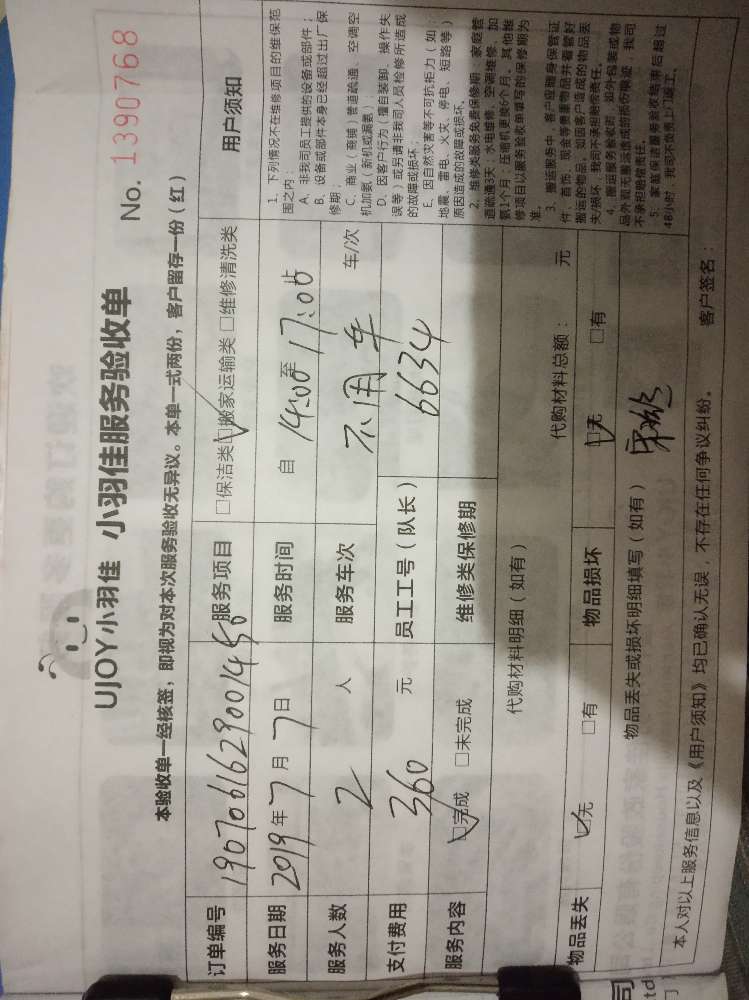 UJOY小羽佳 小羽佳服务验收单
No. 1390768
本验收单一经核签，即视为对本次服务验收无异议。本单一式两份，客户留存一份（红）
订单编号 1907061629001450 服务项目 □保洁类 ☑搬家运输类 □维修清洗类
服务日期 2019年7月7日 服务时间 自 14:00 至 17:00
服务人数 2 人 服务车次 不用车 车/次
支付费用 360 元 员工工号（队长） 6634
服务内容 ☑完成 □未完成 维修类保修期
代购材料明细（如有） 代购材料总额： 元
物品丢失 ☑无 □有 物品损坏 ☑无 □有
物品丢失或损坏明细填写（如有）
本人对以上服务信息以及《用户须知》均已确认无误，不存在任何争议纠纷。 客户签名：
用户须知
1、下列情况不在维修项目的维保范
围之内：
A、非我司员工提供的设备或部件；
B、设备或部件本身已经超过出厂保
修期；
C、商业（商铺）管道疏通、空调空
机加氨（新机或漏氨）；
D、因客户行为（擅自装卸、操作失
误等）或另请非我司人员检修所造成
的故障或损坏；
E、因自然灾害等不可抗拒力（如：
地震、雷电、火灾、停电、短路等）
原因造成的故障或损坏。
2、维修类服务免费保修期：家庭管
道疏通3天；水电维修、空调维修、加
氨1个月；压缩机更换6个月。其他维
修项目以服务验收单填写的保修期为
准。
3、搬运服务中，客户应随身保管证
件、首饰、现金等贵重物品并看管好
搬运的物品，如因客户造成的物品丢
失/损坏，我司不承担赔偿责任。
4、搬运服务验收时，如外包装或物
品外观无搬运造成的损伤痕迹，我司
不承担赔偿责任。
5、家庭保洁服务验收结束后超过
48小时，我司不负责上门返工。